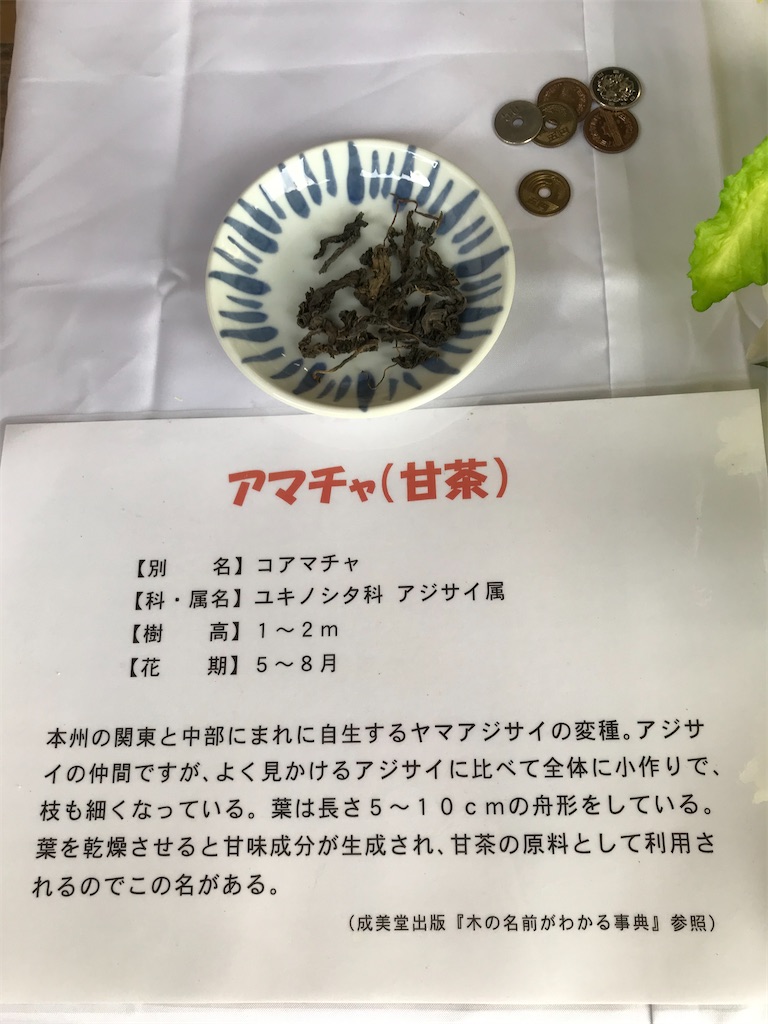 アマチャ(甘茶)
【別　　名】コアマチャ
【科・属名】ユキノシタ科 アジサイ属
【樹　　高】１～２ｍ
【花　　期】５～８月
本州の関東と中部にまれに自生するヤマアジサイの変種。アジサ
イの仲間ですが、よく見かけるアジサイに比べて全体に小作りで、
枝も細くなっている。葉は長さ５～１０ｃｍの舟形をしている。
葉を乾燥させると甘味成分が生成され、甘茶の原料として利用さ
れるのでこの名がある。
（成美堂出版『木の名前がわかる事典』参照）